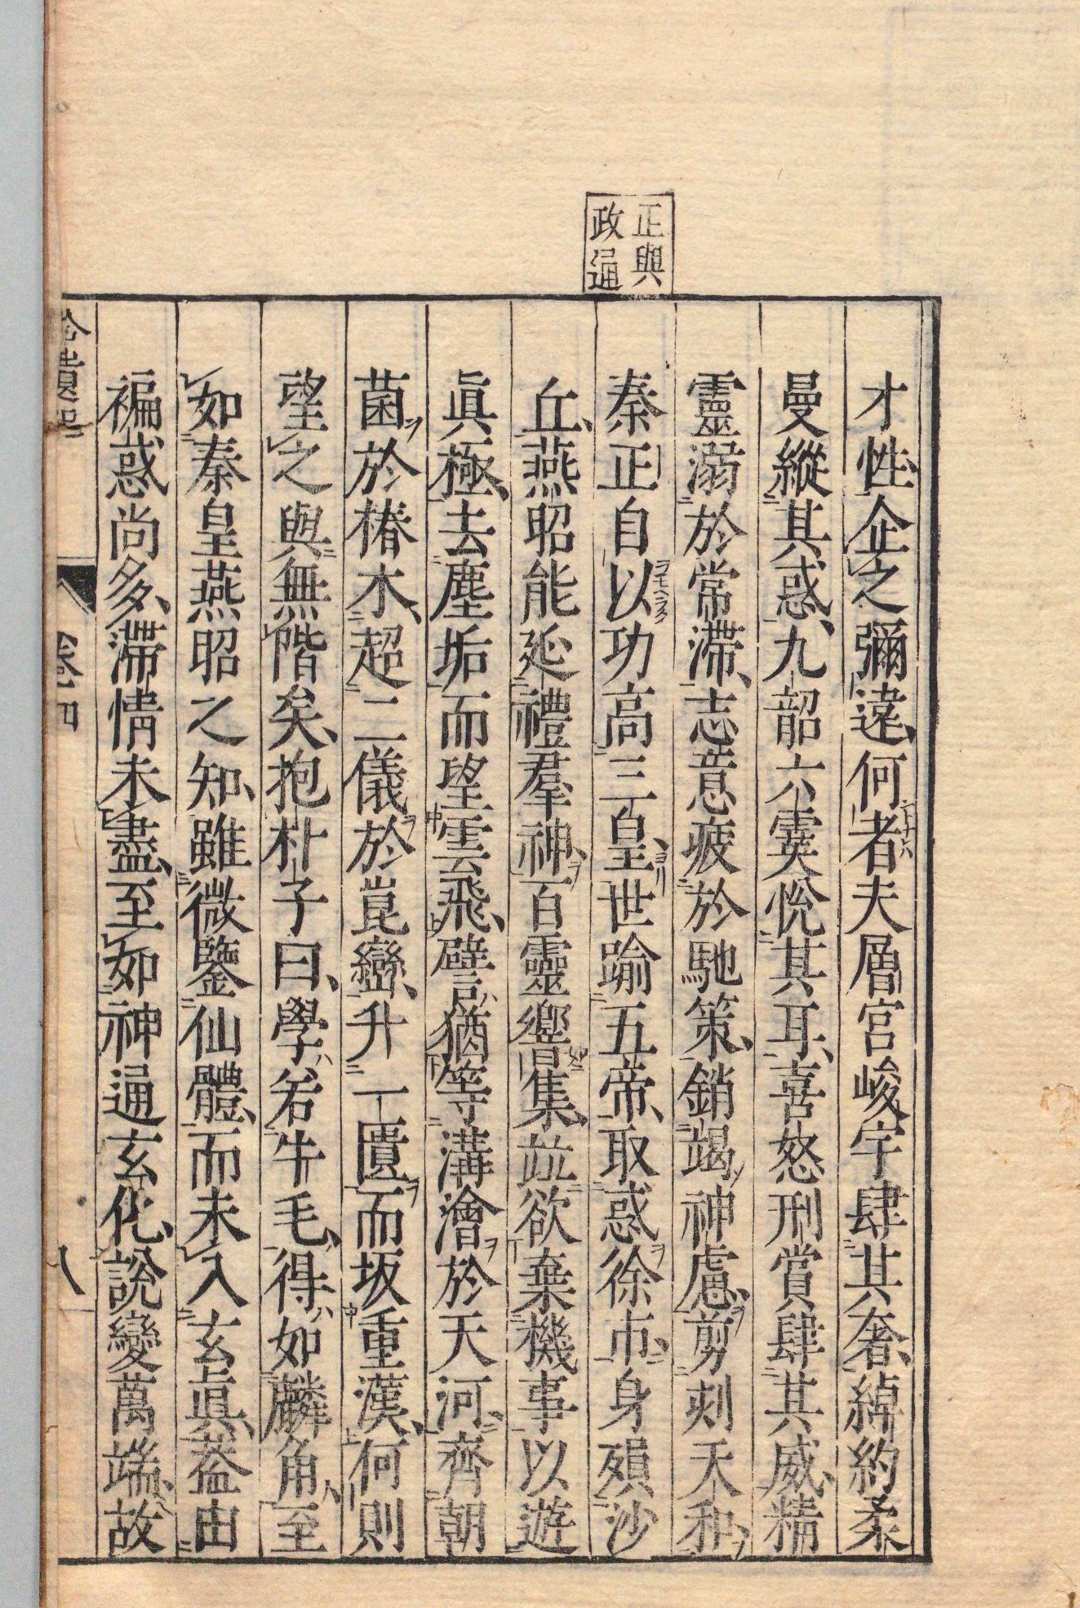 正與
政通
才性、企之彌遠、何者夫層宮峻宇肆其奢、綽約柔
曼縱其惑、九韶六霙悅其耳、喜怒刑賞肆其威、精
靈溺於常滯、志意疲於馳策、銷竭神慮、剪刻天和、
秦正自以功高三皇、世踰五帝、取惑徐市、身殞沙
丘、燕昭能延禮羣神、百靈響集、竝欲棄機事以遊
眞極、去塵垢而望雲飛、譬猶等溝澮於天河、齊朝
菌於椿木、超二儀於崑巒、升一匱而坂重漢、何則
望之與無階矣、抱朴子曰、學若牛毛、得如麟角、至
如秦皇燕昭之知、雖微鑒仙體、而未入玄眞、葢由
褊惑尚多、滯情未盡、至如神通玄化、說變萬端、故
拾遺記
卷四
八